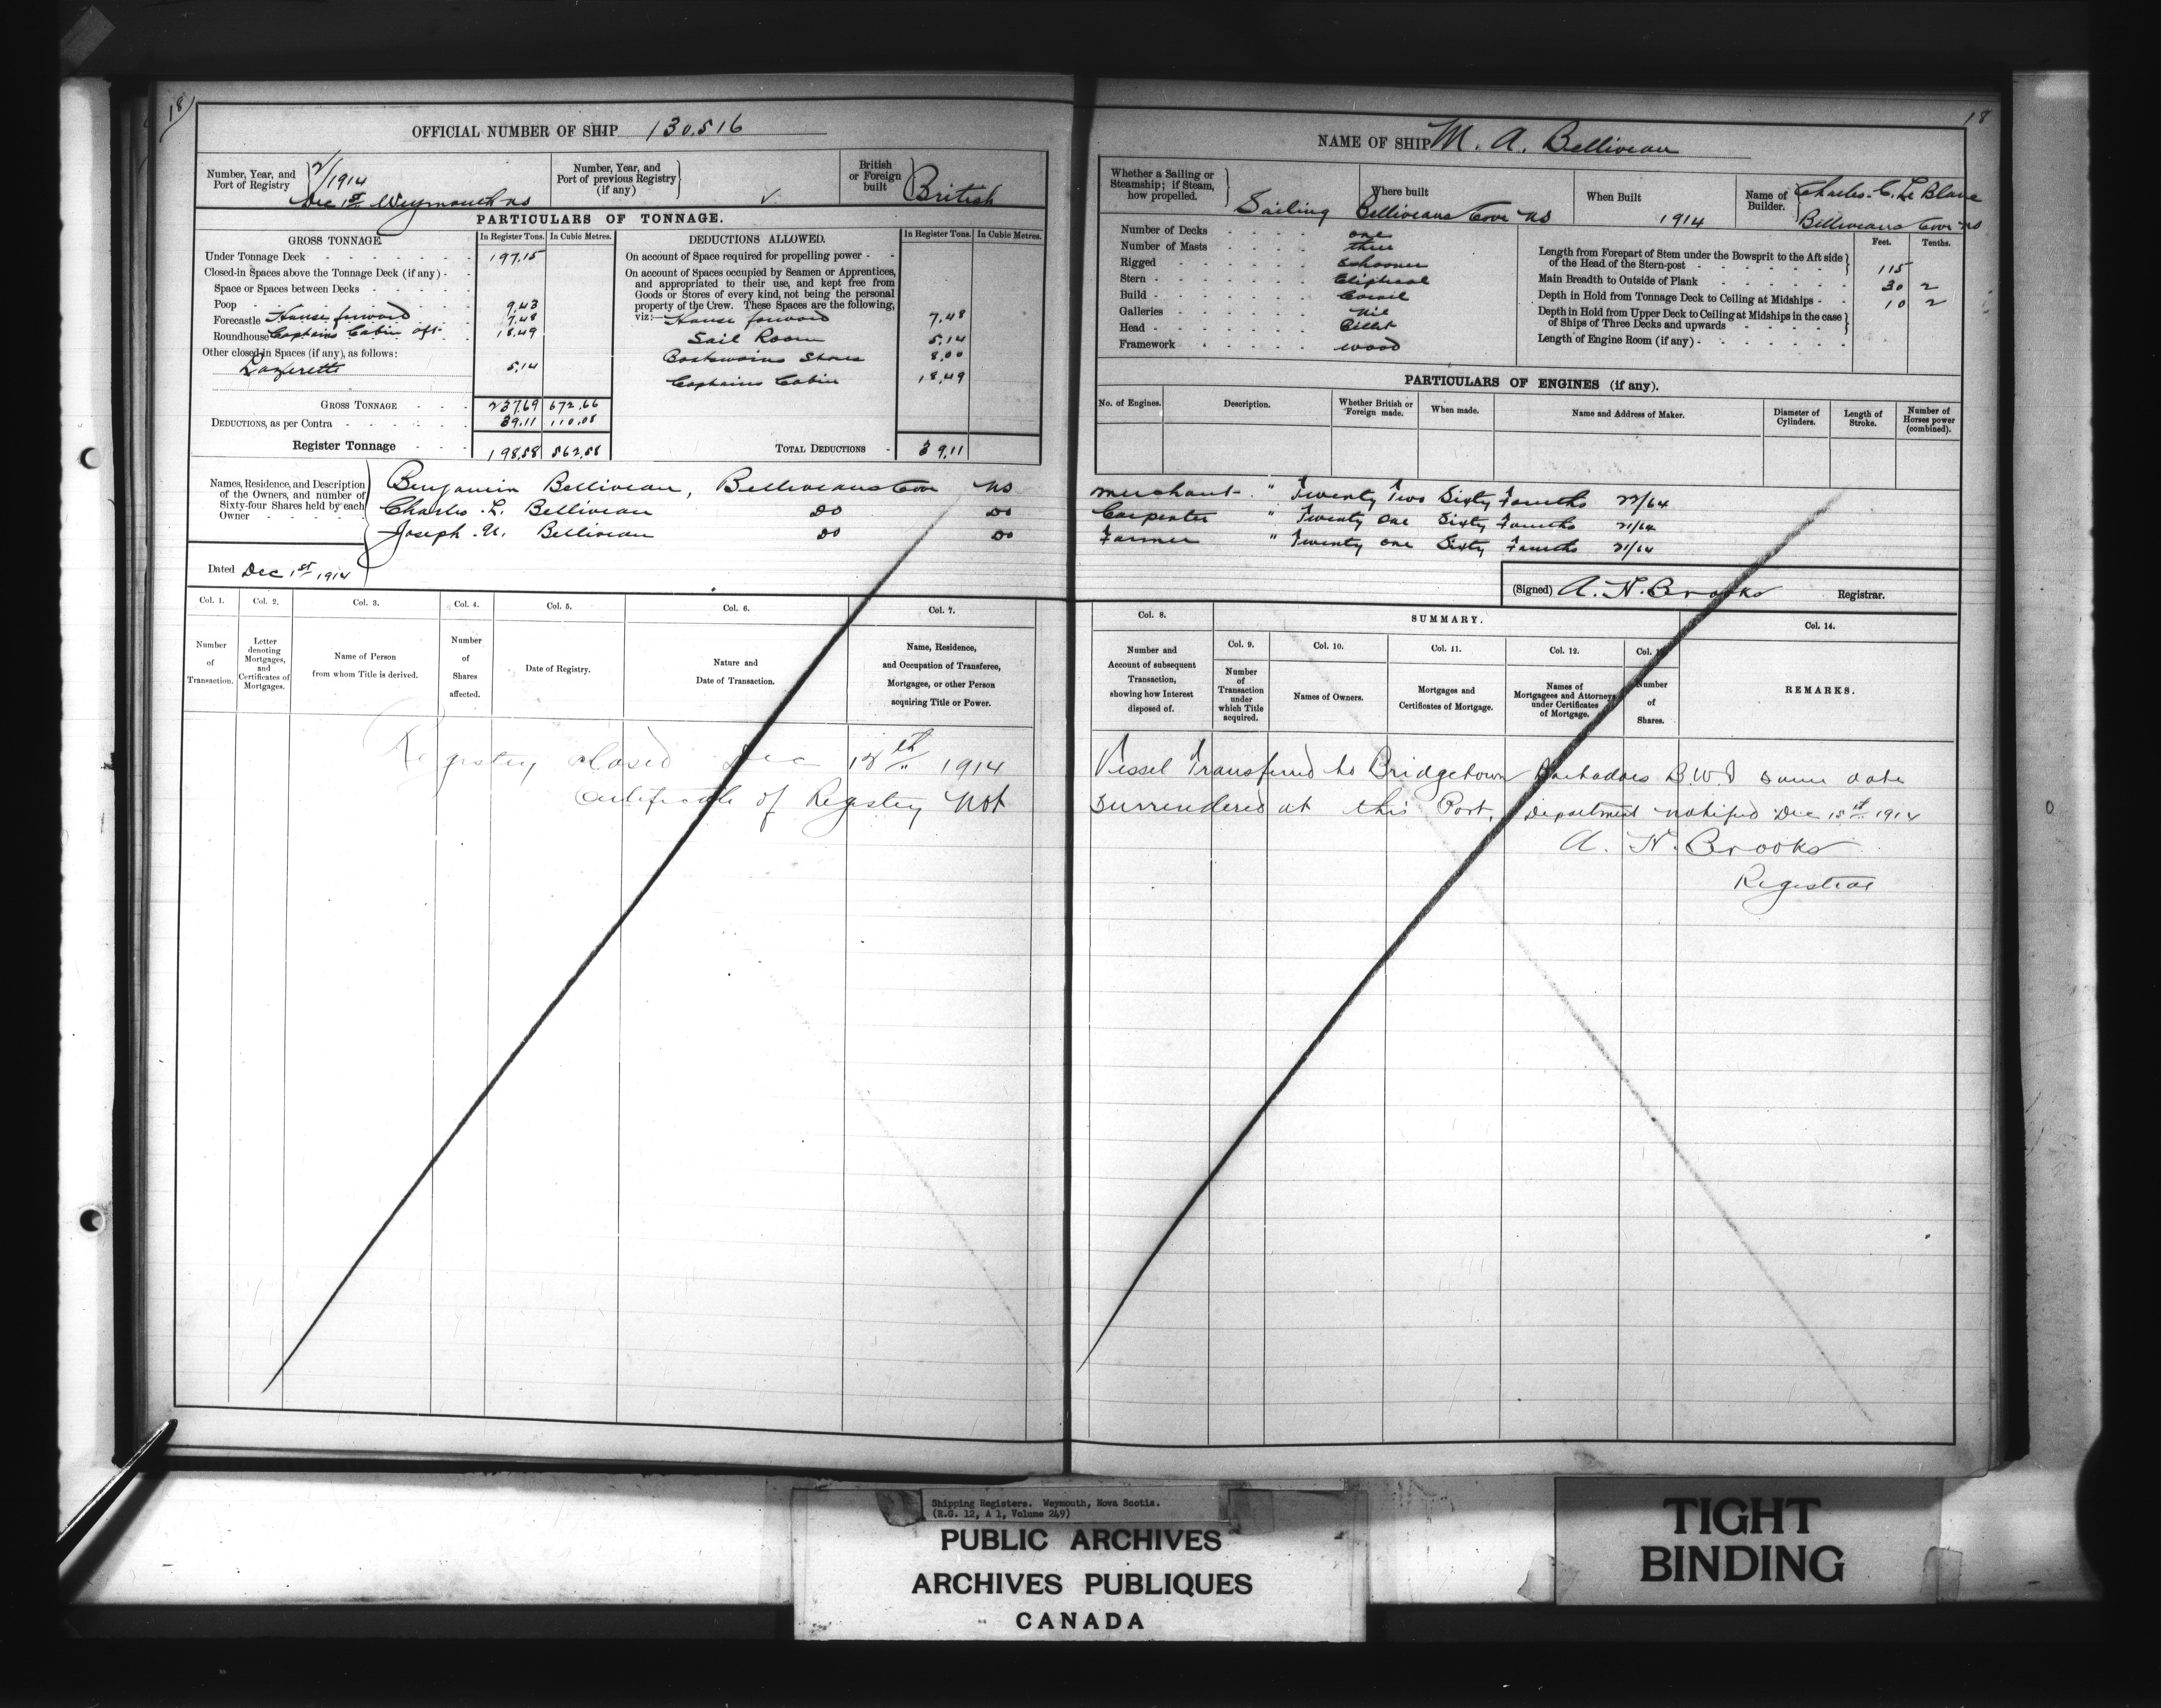 18
OFFICIAL NUMBER OF SHIP 130,516
Number, Year, and Port of Registry 2/1914 Dec 1st Weymouth NS
Number, Year, and Port of previous Registry (if any)
British or Foreign built British
PARTICULARS OF TONNAGE.
GROSS TONNAGE. In Register Tons. In Cubic Metres.
Under Tonnage Deck 197.15
Closed-in Spaces above the Tonnage Deck (if any)
Space or Spaces between Decks
Poop 9.43
Forecastle House forward 7.48
Roundhouse Captains Cabin aft 18.49
Other closed-in Spaces (if any), as follows:
Lazerette 5.14
GROSS TONNAGE 237.69 672.66
DEDUCTIONS, as per Contra 39.11 110.08
Register Tonnage 198.58 562.58
DEDUCTIONS ALLOWED. In Register Tons. In Cubic Metres.
On account of Space required for propelling power
On account of Spaces occupied by Seamen or Apprentices,
and appropriated to their use, and kept free from
Goods or Stores of every kind, not being the personal
property of the Crew. These Spaces are the following,
viz:— House forward 7.48
Sail Room 5.14
Boatswains Stores 8.00
Captains Cabin 18.49
TOTAL DEDUCTIONS 39.11
Names, Residence, and Description of the Owners, and number of Sixty-four Shares held by each Owner
Benjamin Belliveau, Belliveaus Cove NS
Charles L. Belliveau Do Do
Joseph N. Belliveau Do Do
Dated Dec 1st 1914
Col. 1. Col. 2. Col. 3. Col. 4. Col. 5. Col. 6. Col. 7.
Number of Transaction.
Letter denoting Mortgages, and Certificates of Mortgages.
Name of Person from whom Title is derived.
Number of Shares affected.
Date of Registry.
Nature and Date of Transaction.
Name, Residence, and Occupation of Transferee, Mortgagee, or other Person acquiring Title or Power.
Registry closed Dec 18th 1914
Certificate of Registry Not
18
NAME OF SHIP M. A. Belliveau
Whether a Sailing or Steamship; if Steam, how propelled. Sailing
Where built Belliveaus Cove NS
When Built 1914
Name of Builder. Charles. C. Le Blanc Belliveaus Cove NS
Number of Decks one
Number of Masts three
Rigged Schooner
Stern Eliptical
Build Carvil
Galleries Nil
Head Billet
Framework wood
Feet. Tenths.
Length from Forepart of Stem under the Bowsprit to the Aft side of the Head of the Stern-post 115
Main Breadth to Outside of Plank 30 2
Depth in Hold from Tonnage Deck to Ceiling at Midships 10 2
Depth in Hold from Upper Deck to Ceiling at Midships in the case of Ships of Three Decks and upwards
Length of Engine Room (if any)
PARTICULARS OF ENGINES (if any).
No. of Engines. Description. Whether British or Foreign made. When made. Name and Address of Maker. Diameter of Cylinders. Length of Stroke. Number of Horses power (combined).
Merchant " Twenty Two Sixty Fourths 22/64
Carpenter " Twenty one Sixty Fourths 21/64
Farmer " Twenty one Sixty Fourths 21/64
(Signed) A. N. Brooks Registrar.
Col. 8. SUMMARY. Col. 14.
Col. 9. Col. 10. Col. 11. Col. 12. Col. 1
Number and Account of subsequent Transaction, showing how Interest disposed of.
Number of Transaction under which Title acquired.
Names of Owners.
Mortgages and Certificates of Mortgage.
Names of Mortgagees and Attorneys under Certificates of Mortgage.
Number of Shares.
REMARKS.
Vessel Transferred to Bridgetown Barbadoes B.W.I same date
Surrendered at this Port. Department notified Dec 18th 1914
A. N. Brooks
Registrar
Shipping Registers. Weymouth, Nova Scotia.
(R.G. 12, A 1, Volume 249)
PUBLIC ARCHIVES
ARCHIVES PUBLIQUES
CANADA
TIGHT
BINDING